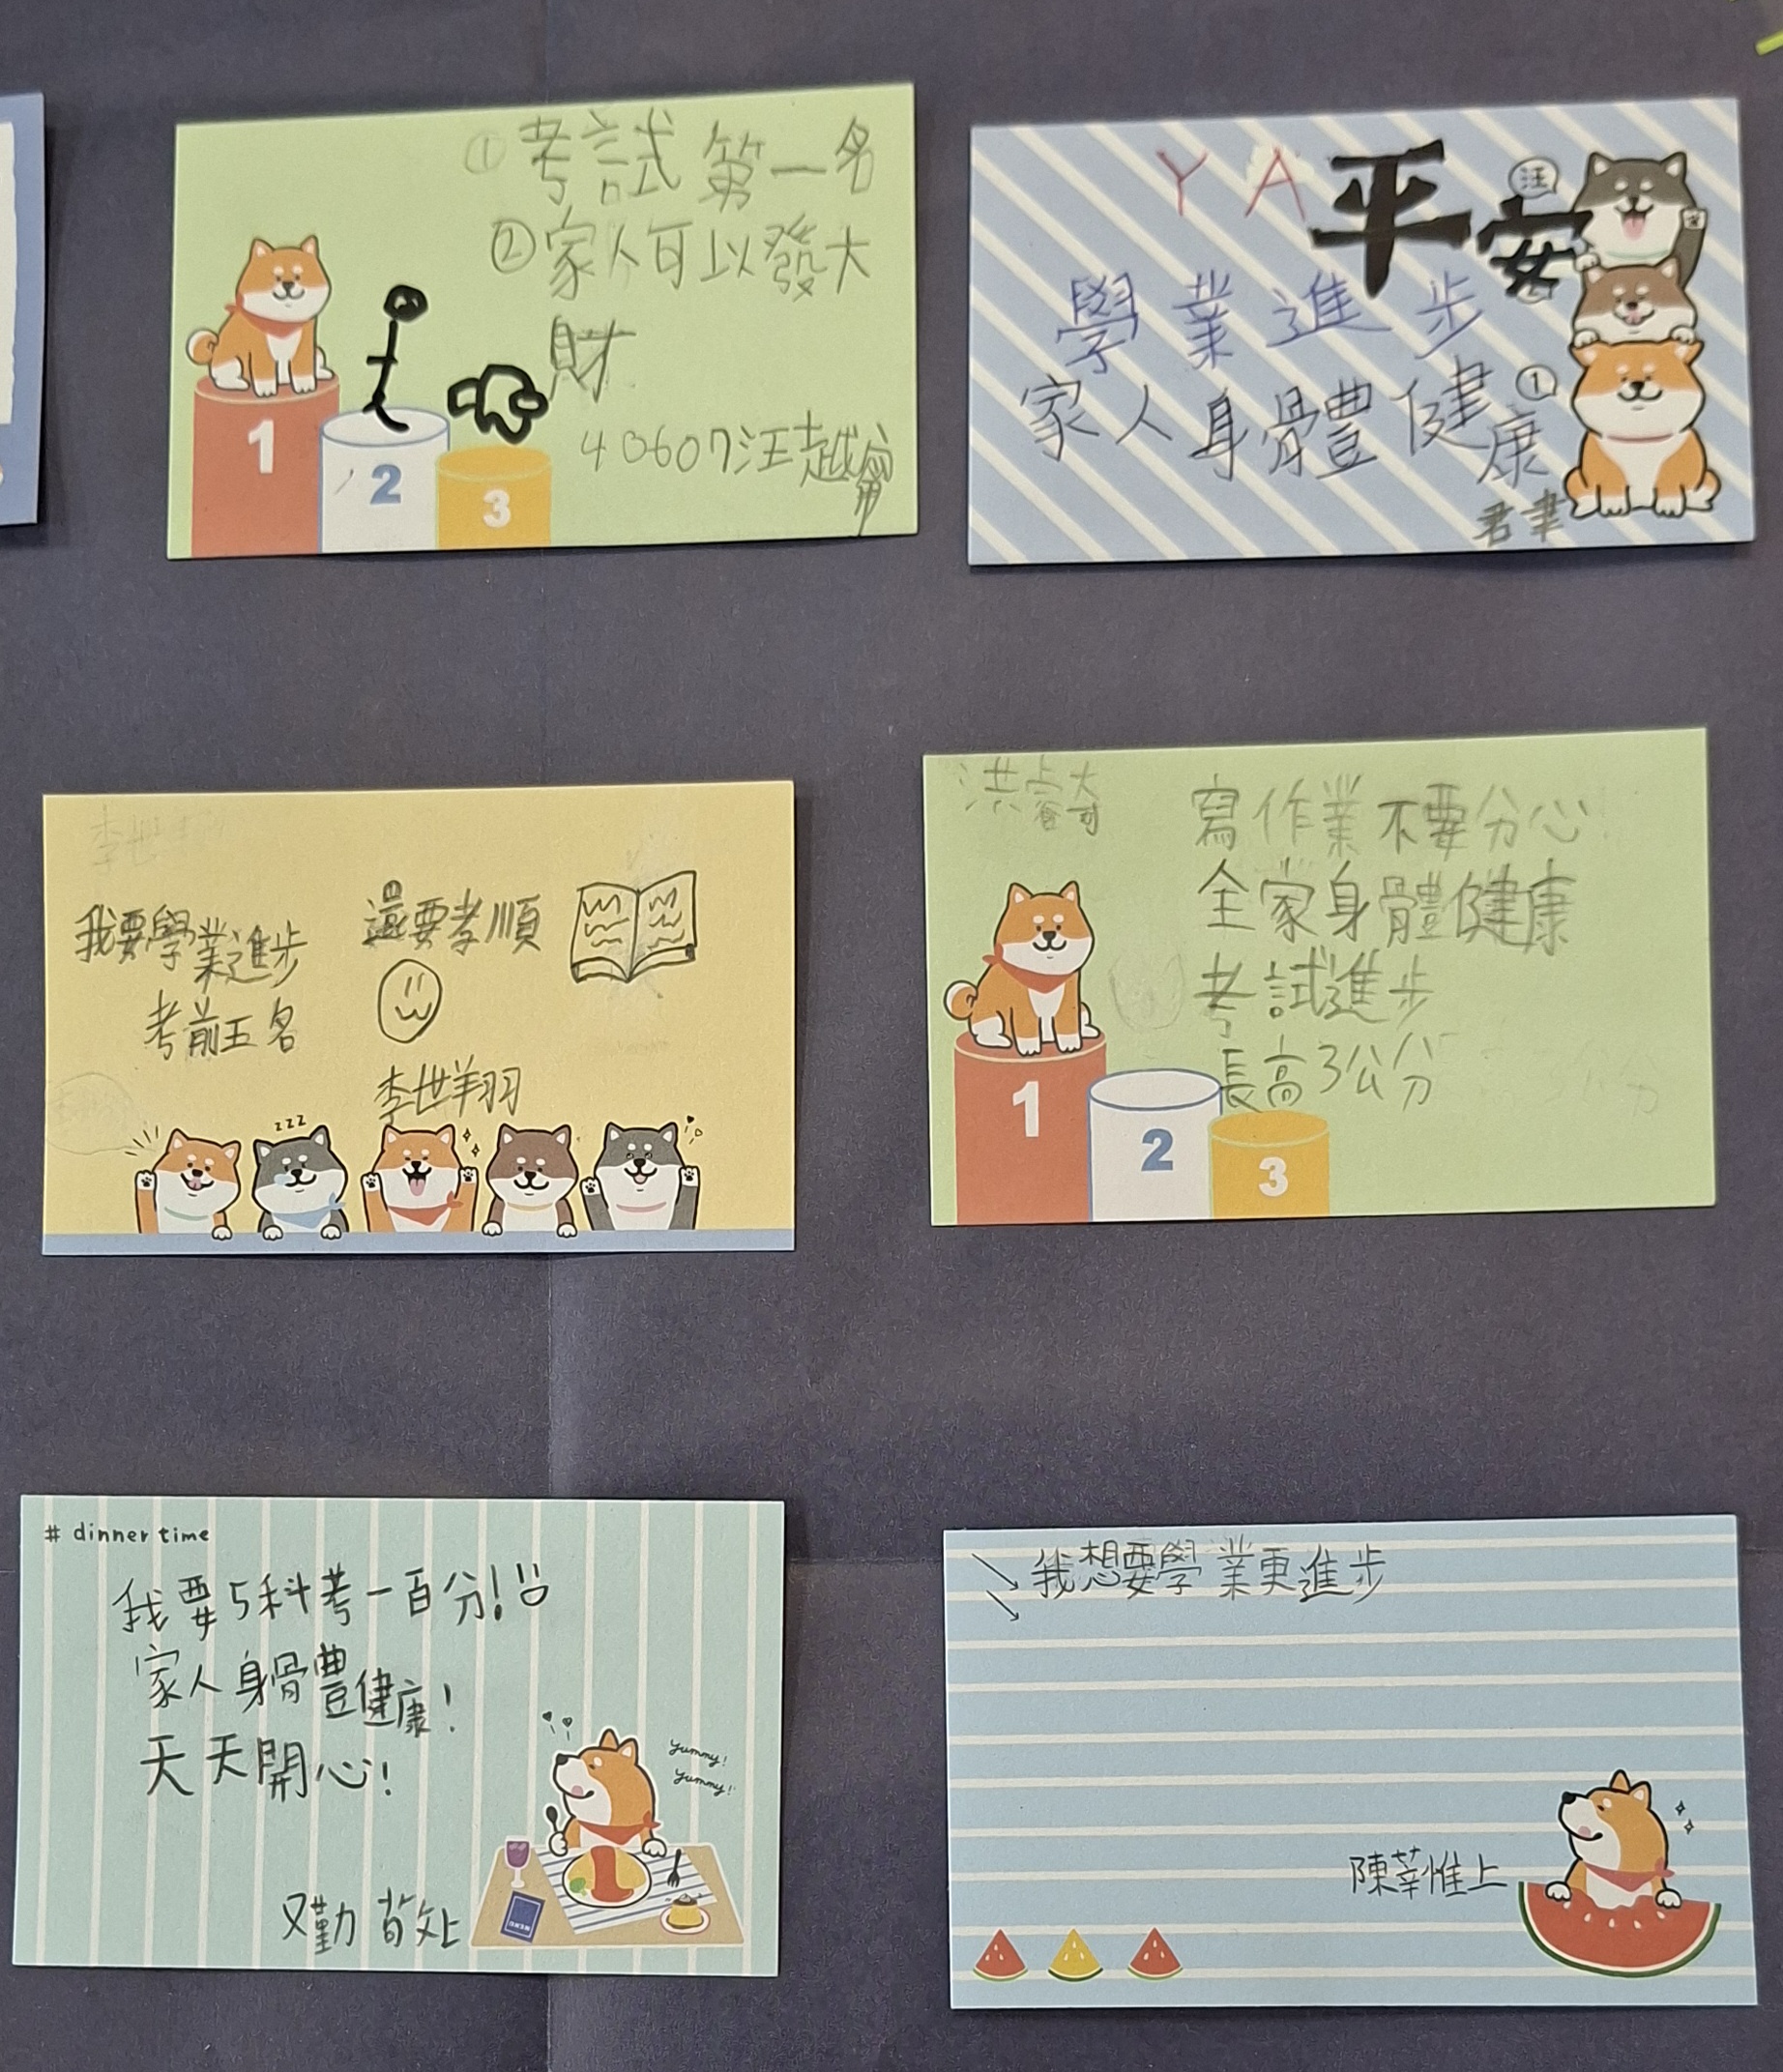 ① 考試第一名
② 家人可以發大
財
40607汪越
1
2
3
YA 平安
汪
學業進步
家人身體健康
1
君聿
李世
我要學業進步
考前五名
還要孝順
李世羿
zzz
洪睿
寫作業不要分心
全家身體健康
考試進步
長高3公分
1
2
3
# dinner time
我要5科考一百分!
家人身體健康!
天天開心!
又勤 敬上
yummy!
yummy!
MENU
我想要學業更進步
陳莘惟上